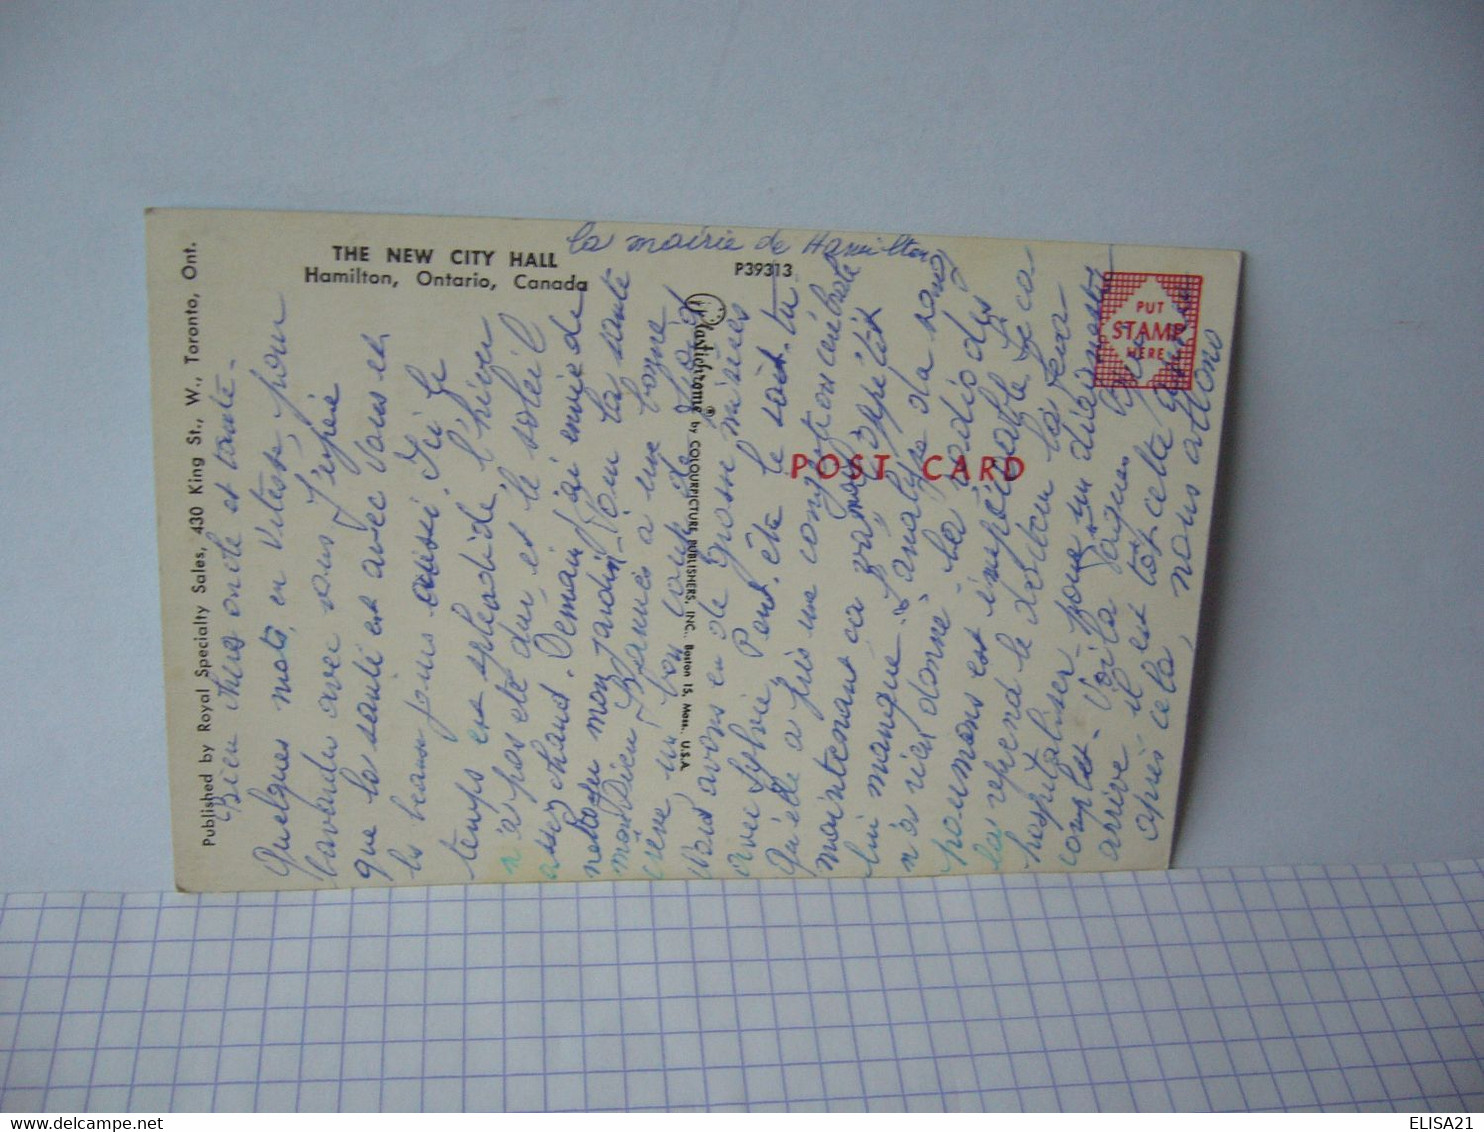 la mairie de Hamilton
THE NEW CITY HALL
Hamilton, Ontario, Canada
P39313
Published by Royal Specialty Sales, 430 King St., W., Toronto, Ont.
Plastichrome ® by COLOURPICTURE PUBLISHERS, INC., Boston 15, Mass., U.S.A.
POST CARD
PUT
STAMP
HERE
Bien chers oncle et tante -
Quelques mots, en vitesse, pour
bavarder avec vous j'espère
que la santé est avec vous et
les beaux jours aussi. Ici le
temps est splendide, l'hiver
n'a pas été dur, et le soleil
assez chaud. Demain j'ai envie de
mon jardin - Pour la santé
mon Dieu bonne
un bon coup de
Nous avons eu de grosses misères
avec Sylvie, Peut-être le sait-tu
Qu'elle a pris une
maintenant ça va, mais l'appétit
lui manque. L'analyse du sang
n'as rien donné. La radio des
poumons est impeccable. Le cas
reprend le docteur la fera
hospitaliser pour un
complet - Voilà
arrive il est tôt cette
après cela, nous allons
ELISA21